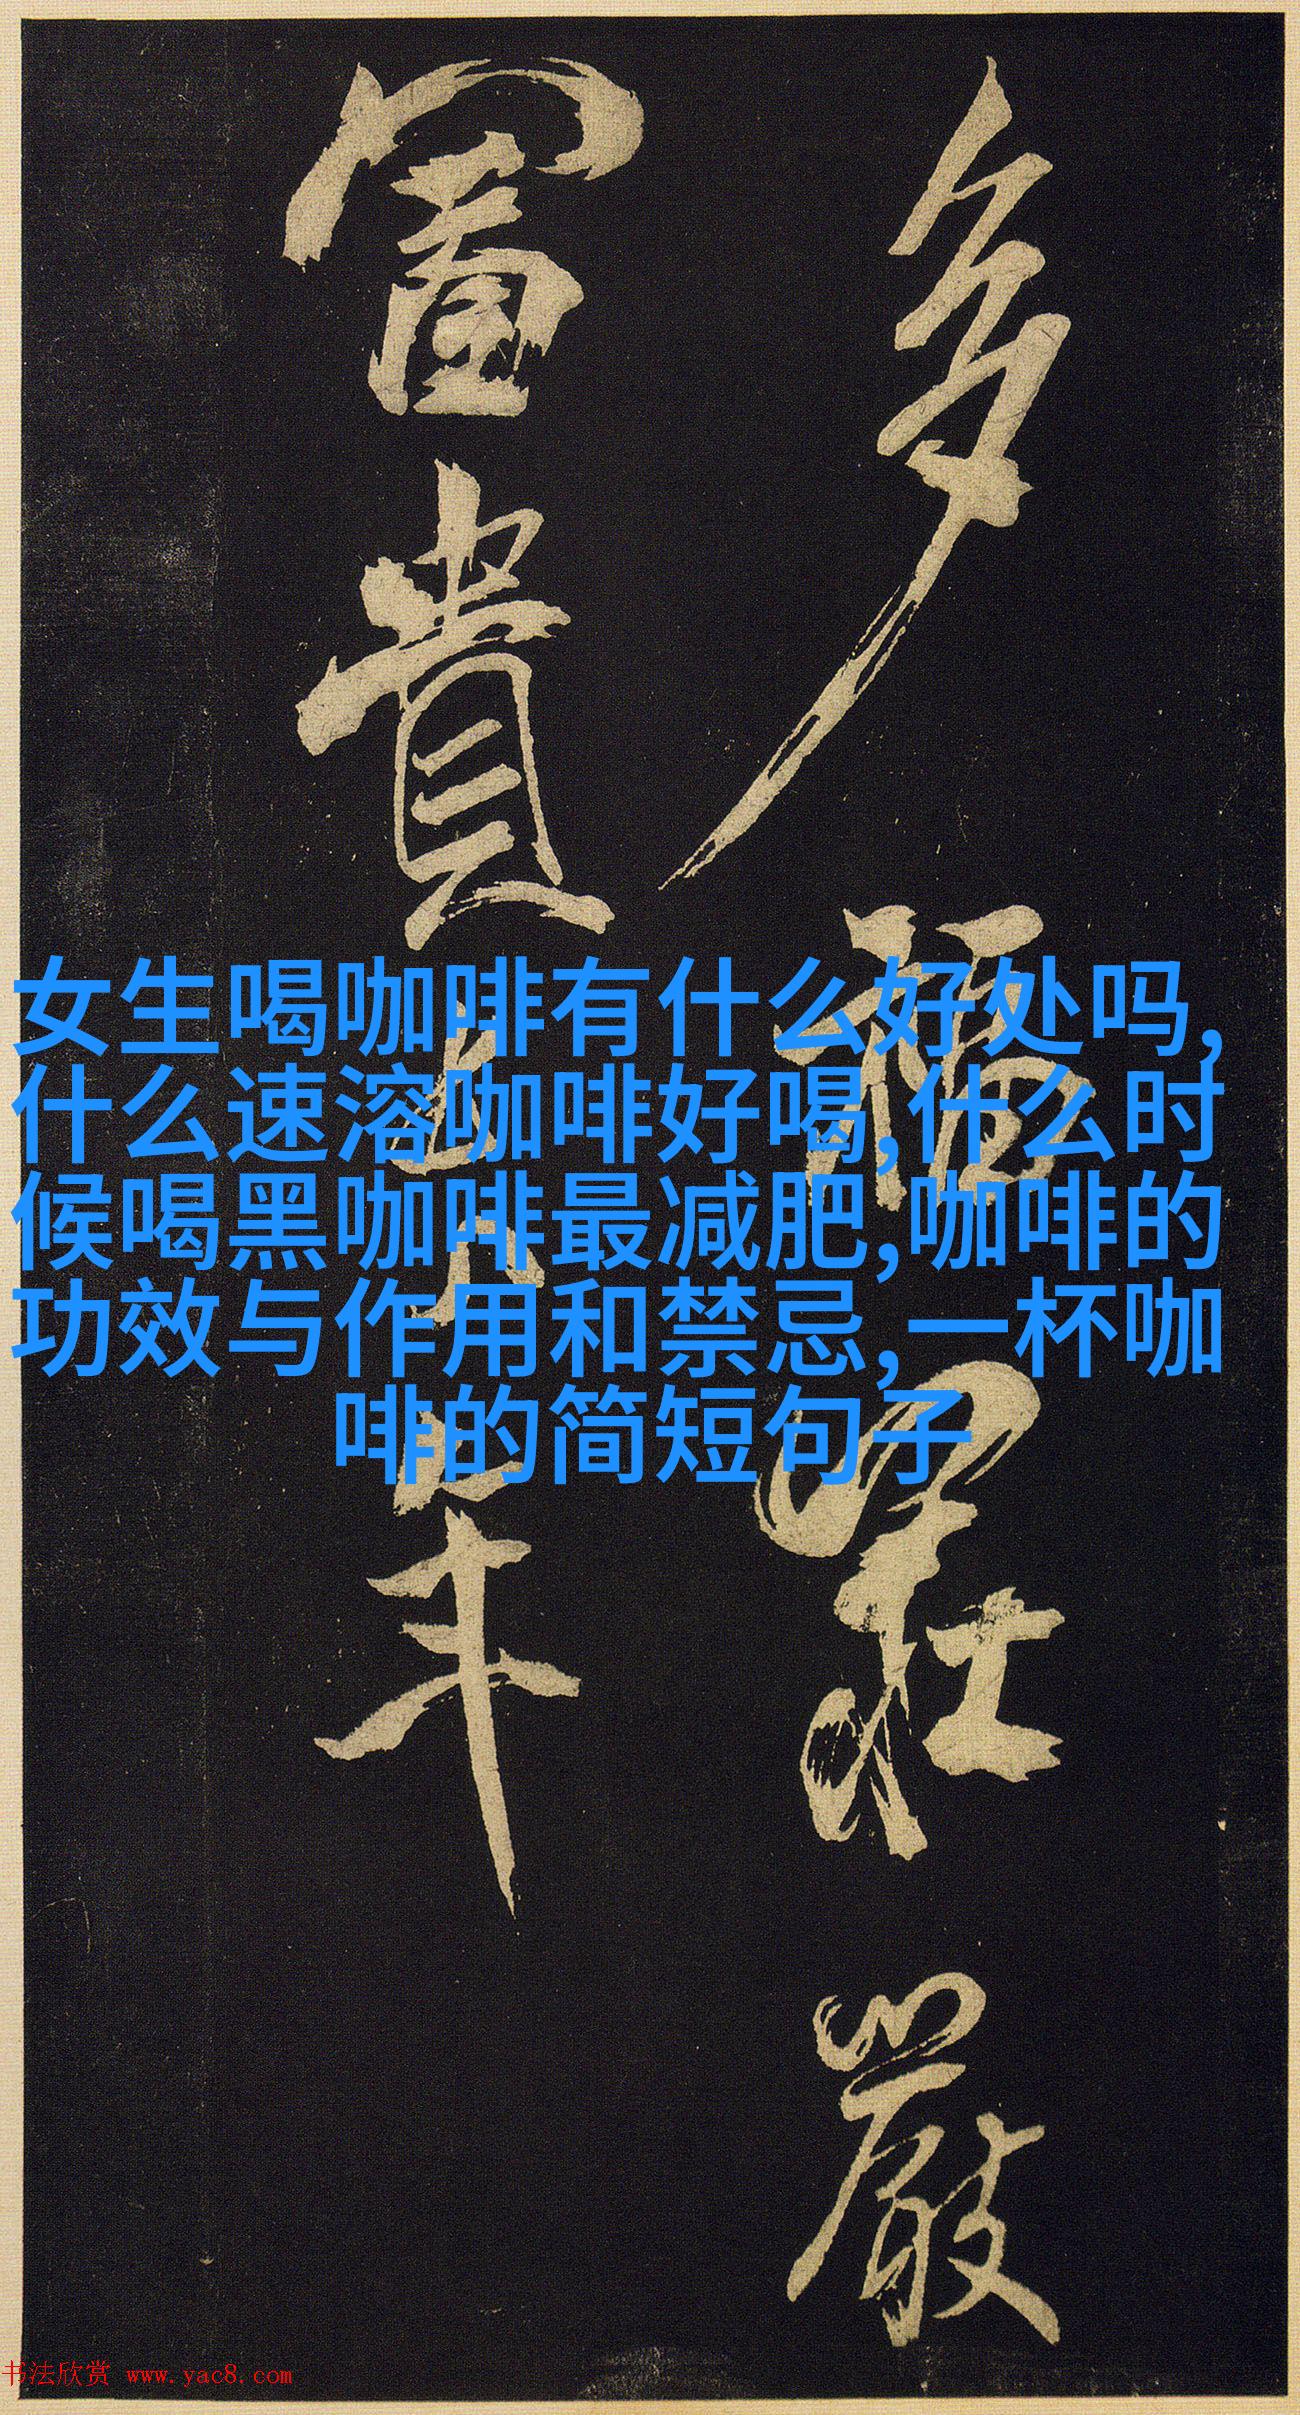 多福壽莊嚴
富貴
女生喝咖啡有什么好处吗,
什么速溶咖啡好喝,什么时
候喝黑咖啡最减肥,咖啡的
功效与作用和禁忌,一杯咖
啡的简短句子
书法欣赏 www.yac8.com